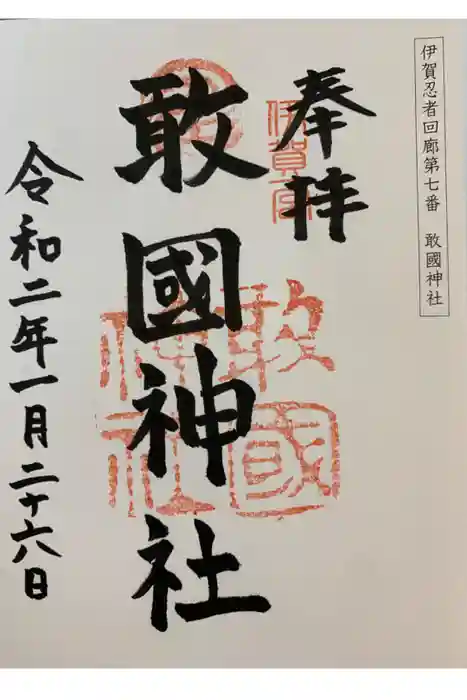 伊賀忍者回廊第七番 敢國神社
奉拝
伊賀一宮
敢國神社
敢國
神社
令和二年一月二十六日